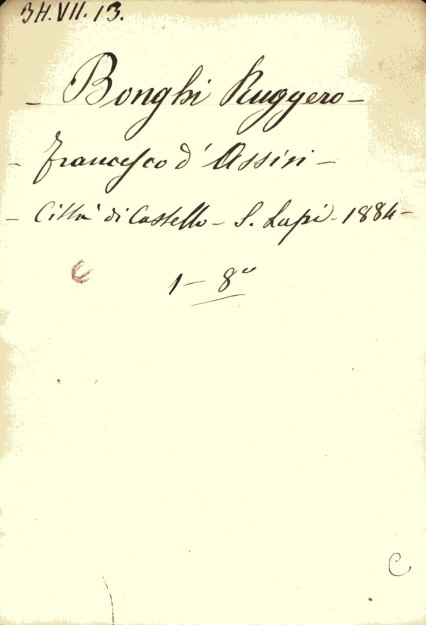 3H.VII.13.
– Bonghi Ruggero –
– Francesco d'Assisi –
– Città di Castello – S. Lapi – 1884 –
1 – 8º
C
C